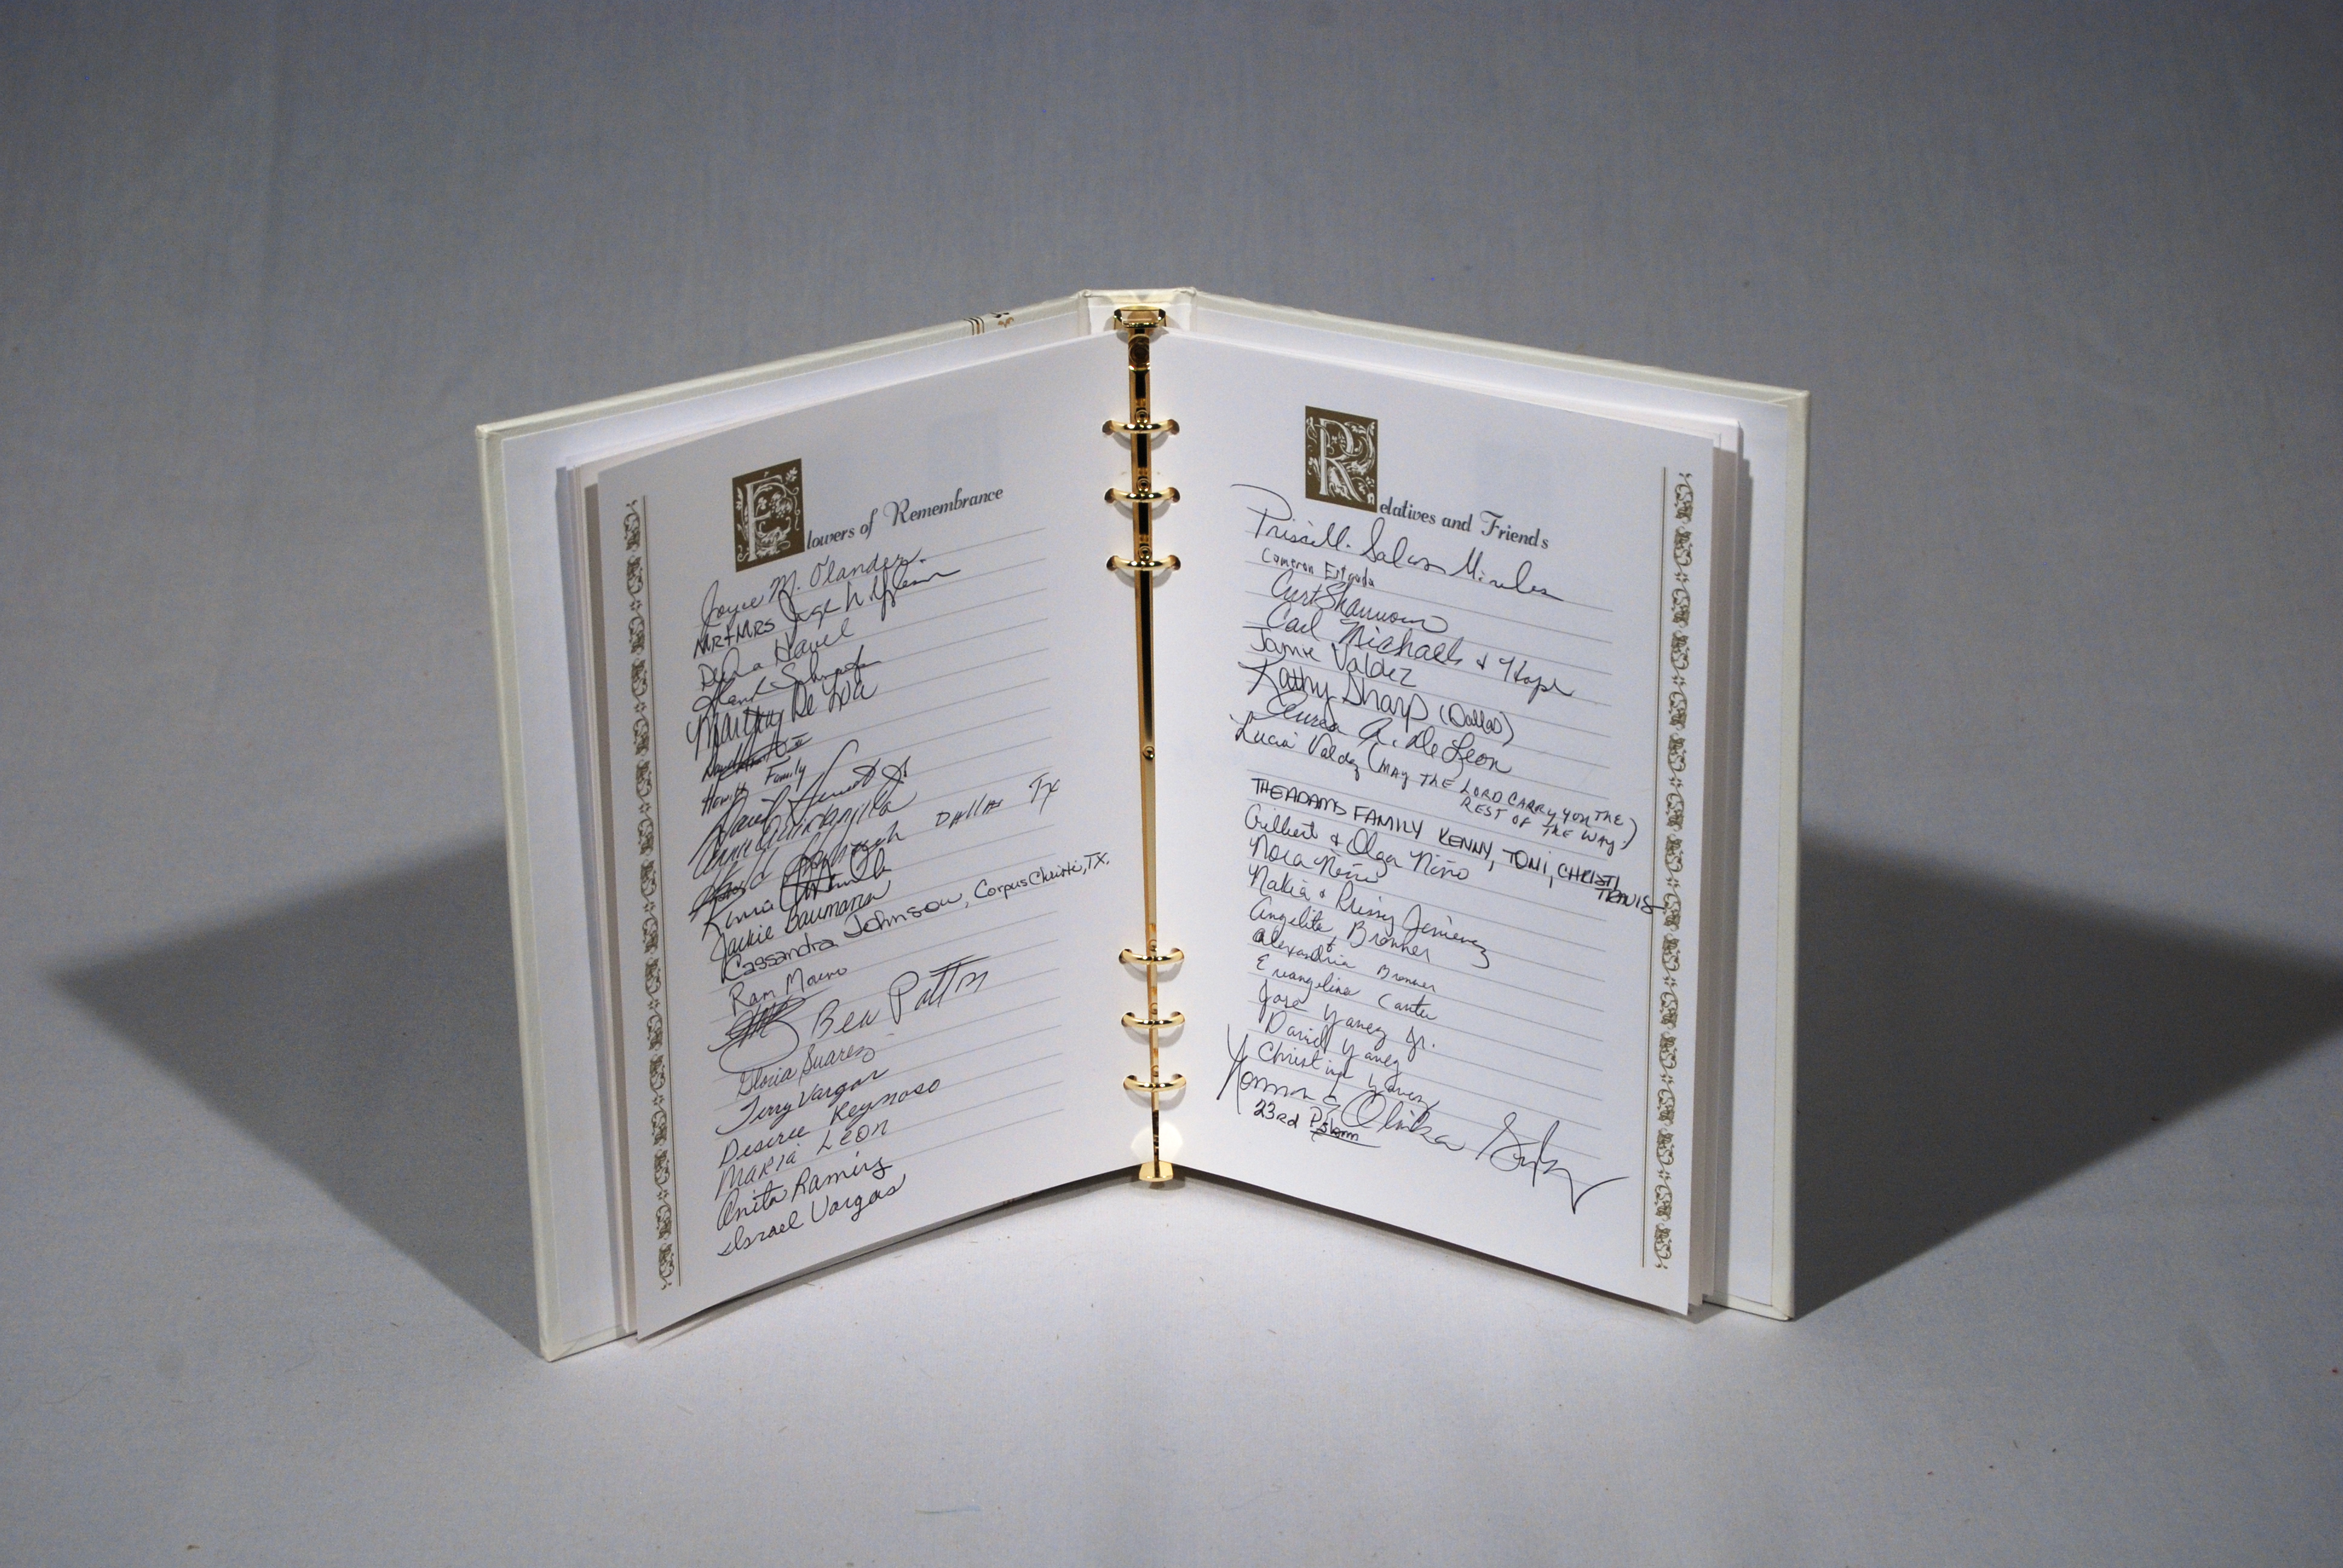 Flowers of Remembrance
Joyce M. Olander
Mr + Mrs
Havel
Hank
Martha De
Family
David Jr
Quintanilla
Dallas TX
Jackie Baumann
Cassandra Johnson, Corpus Christi, TX.
Ram
Bea Patton
Gloria Suarez
Terry Vargas
Desiree Reynoso
MARIA LEON
Anita Ramirez
Israel Vargas
Relatives and Friends
Salas Mireles
Cameron
Curt Shannon
Carl Michaels + Hope
Jamie Valdez
Kathy Sharp (Dallas)
Aurea A. De Leon
Lucia Valdez (MAY THE LORD CARRY YOU THE
REST OF THE WAY)
THE ADAMS FAMILY KENNY, TONI, CHRISTI,
TRAVIS
Gilbert & Olga Niño
Nora Niño
Nakia + Prissy Jimenez
Angelita Bronner
Alexandria Bronner
Evangelina Cantu
Jose Yanez Jr.
David Yanez
Christina Yanez
23rd Psalm